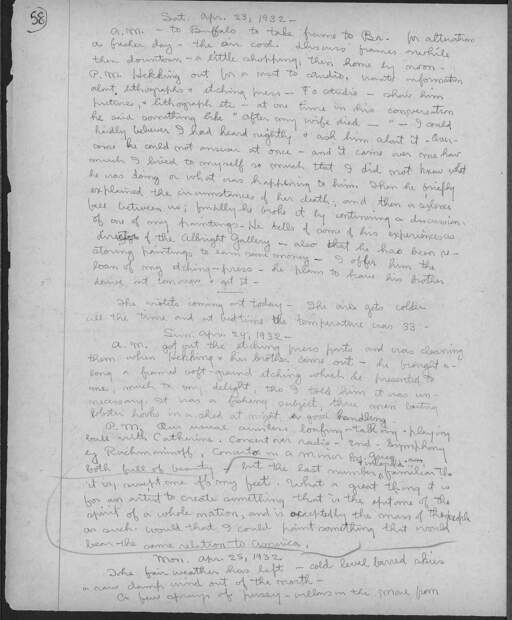 58
Sat. Apr. 23, 1932 —
A.M. — to Buffalo to take frames to Bn. for alteration
a fresher day — the air cool. discuss frames awhile
then downtown — a little shopping, then home by noon —
P.M. Hekking out for a visit to studio. wants information
about lithographs & etching press — To studio — show him
pictures, & lithograph etc — at one time in his conversation
he said something like "after my wife died — " — I could
hardly believe I had heard rightly & ask him about it.
come he could not answer at once — and it came over me how
much I lived to myself so much that I did not know what
he was doing or what was happening to him. Then he briefly
explained the circumstances of her death, and then a silence
fell between us; finally he broke it by continuing a discussion
of one of my paintings. He tells of some of his experiences as
director of the Albright Gallery — also that he has been re-
storing paintings to earn some money — I offer him the
loan of my etching-press — he plans to have his brother
drive out tomorrow & get it —
The violets coming out today — The air gets colder
all the time and at bedtime the temperature was 33 —
Sun. Apr. 24, 1932 —
A.M. got out the etching press parts and was cleaning
them when Hekking & his brother came out — he brought a-
long a framed soft-ground etching which he presented to
me, much to my delight, tho I told him it was un-
necessary. It was a fishing subject, three men baiting
lobster hooks in a shed at night, good handling
P.M. Our usual aimless loafing — talking — playing
ball with Catherine. Concert over radio — 2nd Symphony
by Rachmaninoff, Concerto in A minor by Grieg
both full of beauty but the last number familiar tho
it is, swept one off my feet. What a great thing it is
for an artist to create something that is the epitome of the
spirit of a whole nation, and is accepted by the mass of the people
as such. Would that I could paint something that would
bear the same relation to America.
Mon. Apr. 25, 1932
The fair weather has left — cold level barred skies
a raw damp wind out of the north —
A few sprigs of pussy-willows in the